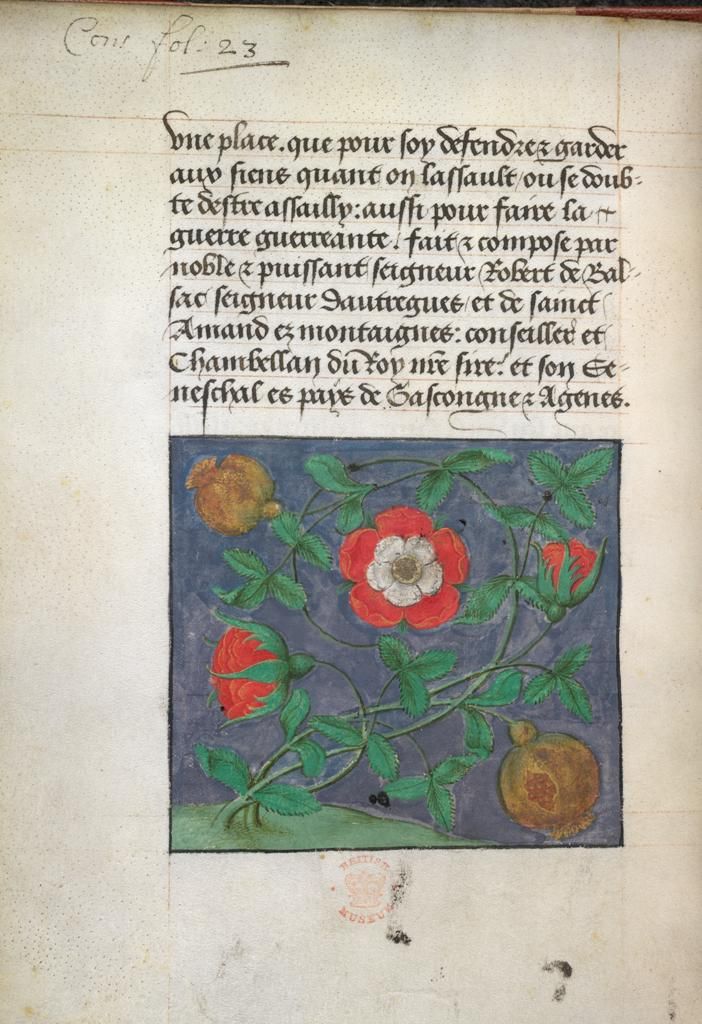 Cons fol: 23
vne place. que pour soy defendre ⁊ garder
aux siens quant on lassault / ou se doub-
te destre assailly: aussi pour faire la
guerre guerreante. fait ⁊ compose par
noble ⁊ puissant seigneur Robert de Bal-
sac seigneur Dautregues / et de sainct
Amand ez montaignes: conseiller et
Chambellan du Roy nr̃e sire: et son Se-
neschal es pays de Gascongne ⁊ Agenes.
BRITISH
MUSEUM